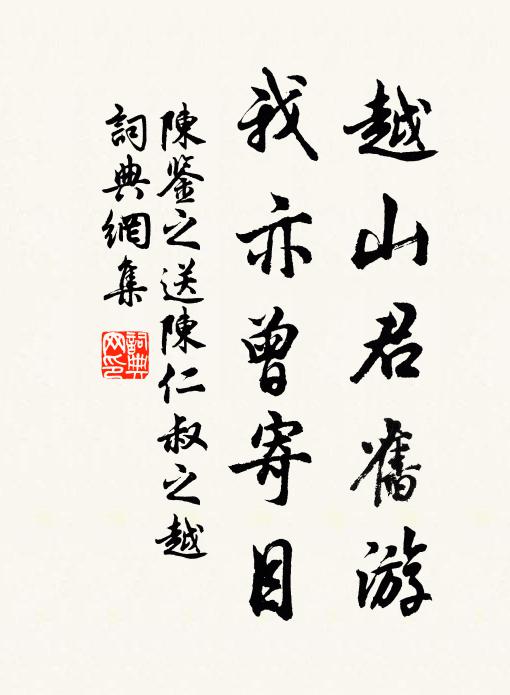 越山君舊游
我亦曾寄目
陳鑒之送陳仁叔之越
詞典網集
詞典網印